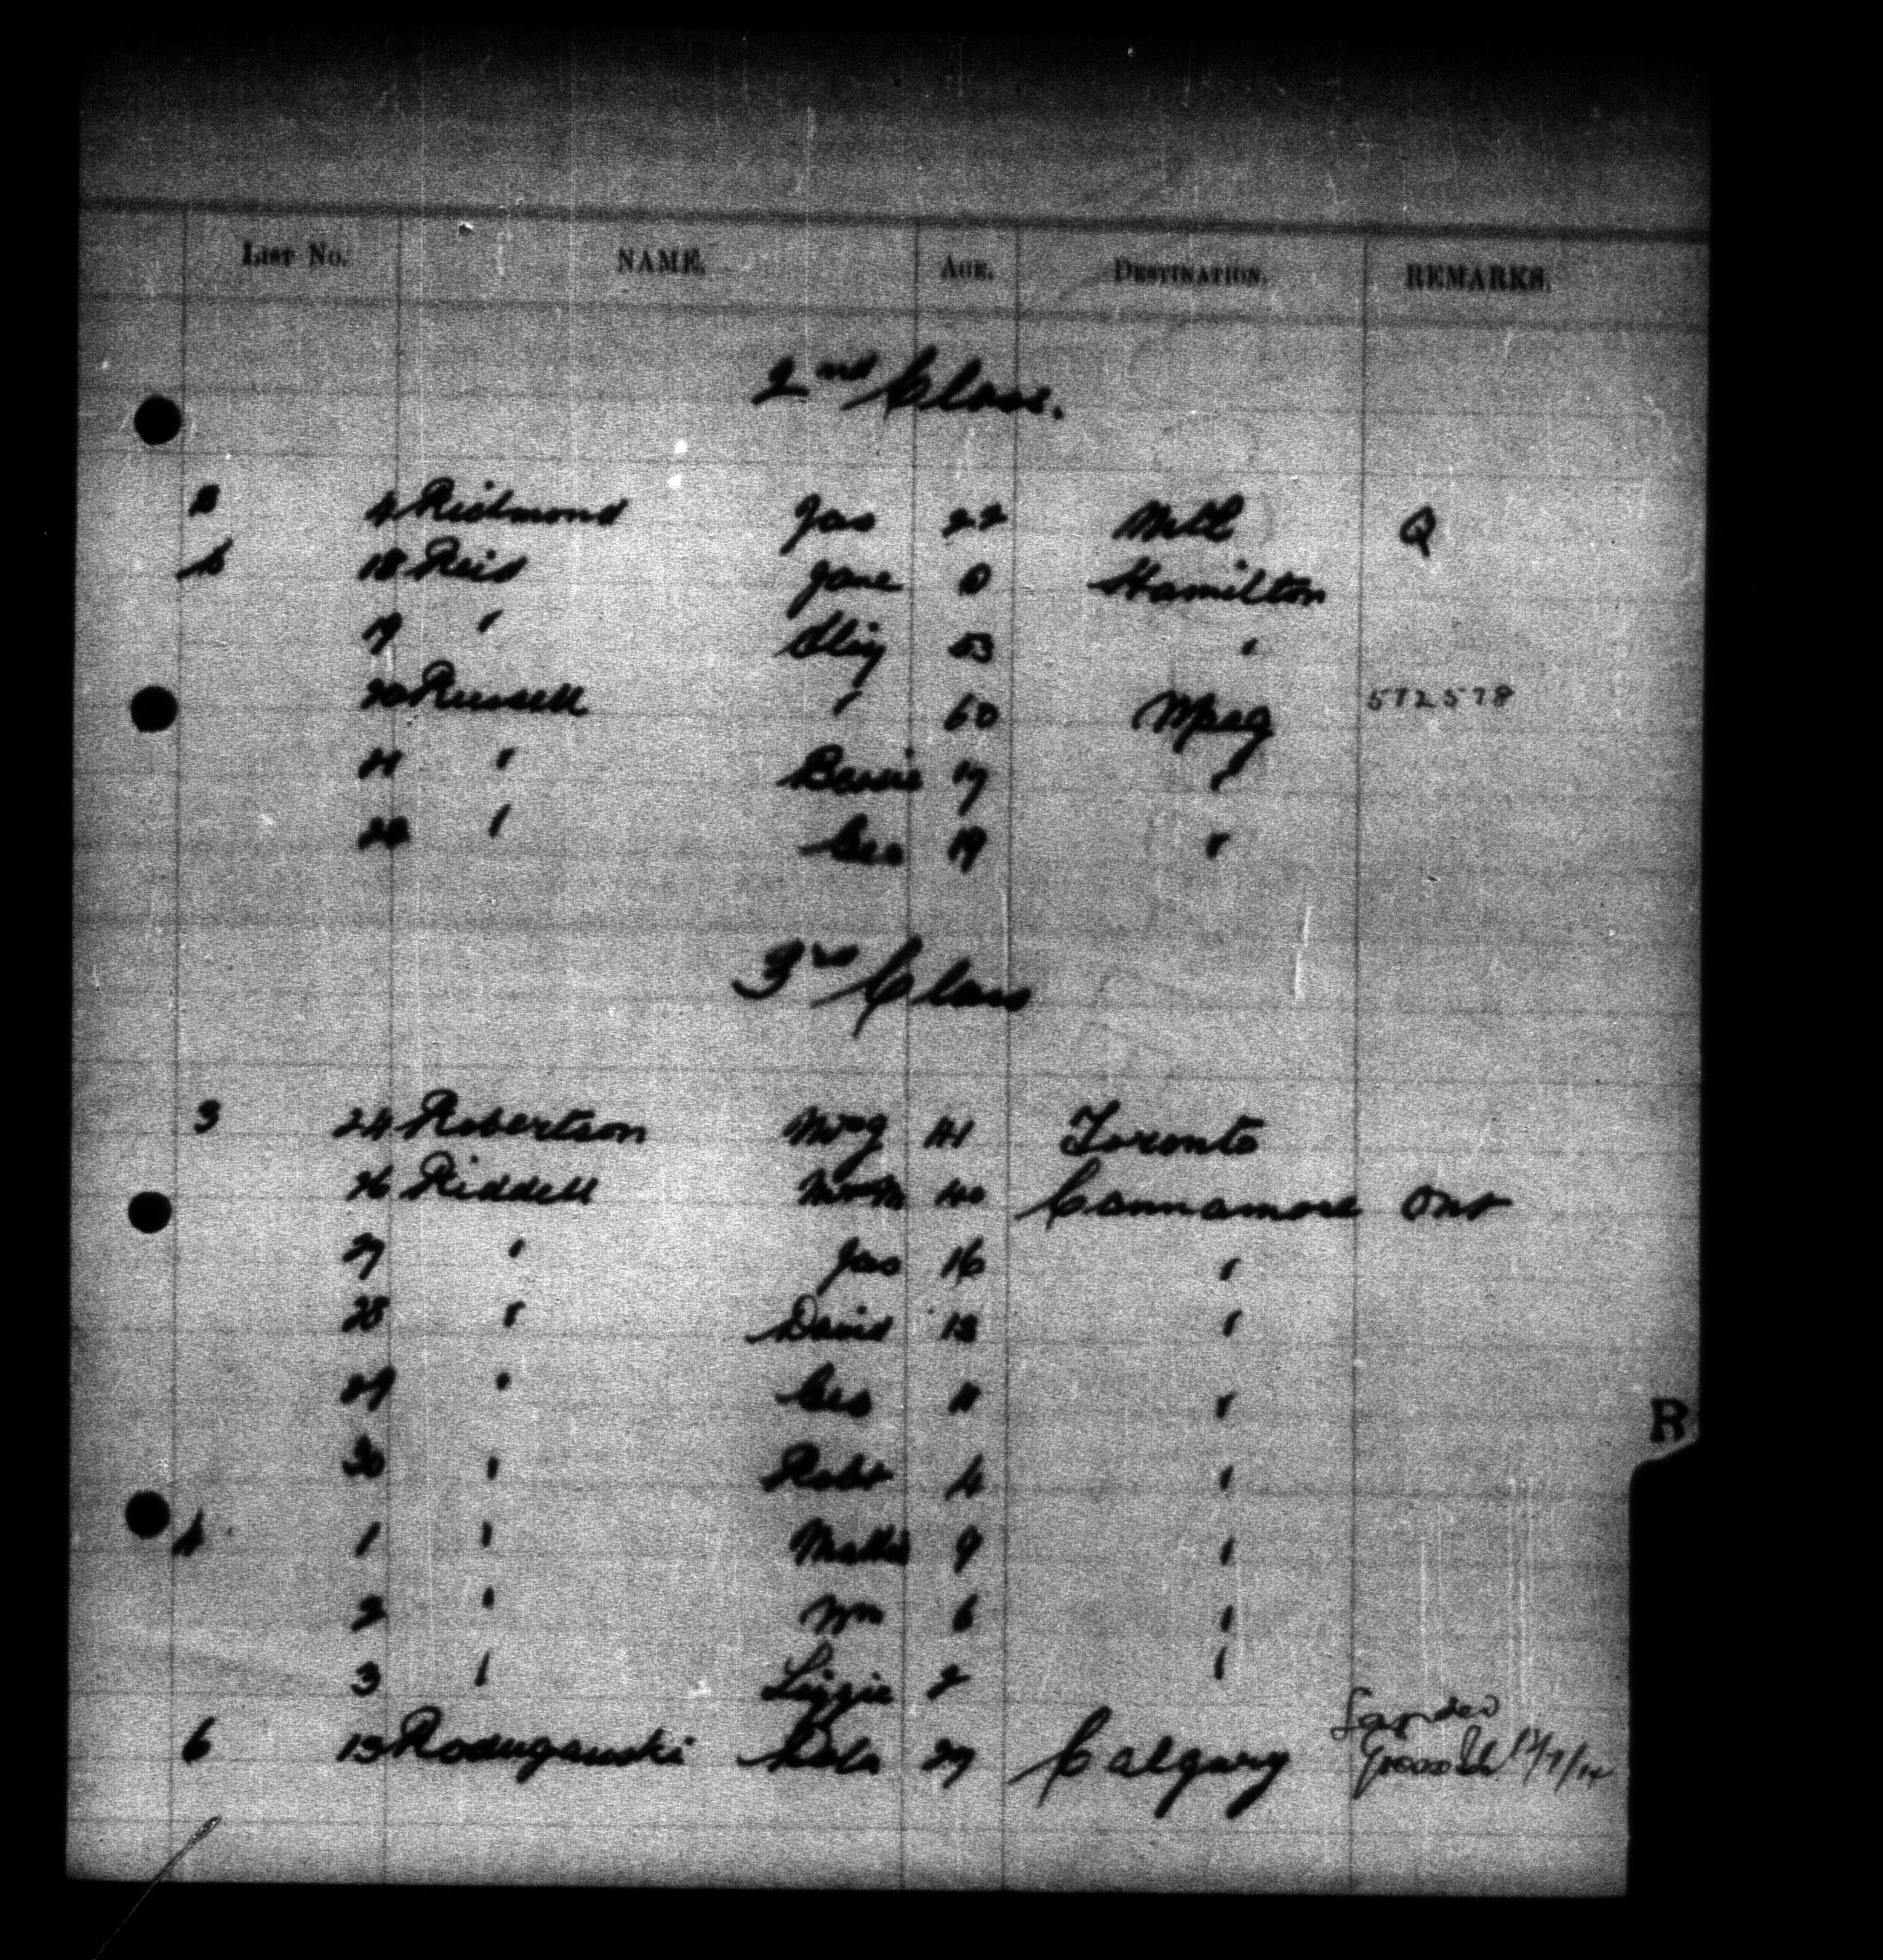 List No. NAME. Age. Destination. REMARKS.
2nd Class.
4 Ridmond Jas 22 Mtl Q
18 Reid Jane Hamilton
19 " 53 "
20 Russell " 60 Wpeg 572578
21 " Bessie 17 "
22 " Geo 19 "
3rd Class
3 24 Robertson 41 Toronto
26 Riddell 40 Connamore Ont
27 " Jas 16 "
28 " David 13 "
29 " Geo 11 "
30 " Robt 4 "
R
1 " 9 "
2 " Wm 6 "
3 " Lizzie 2 "
6 13 Calgary Landed